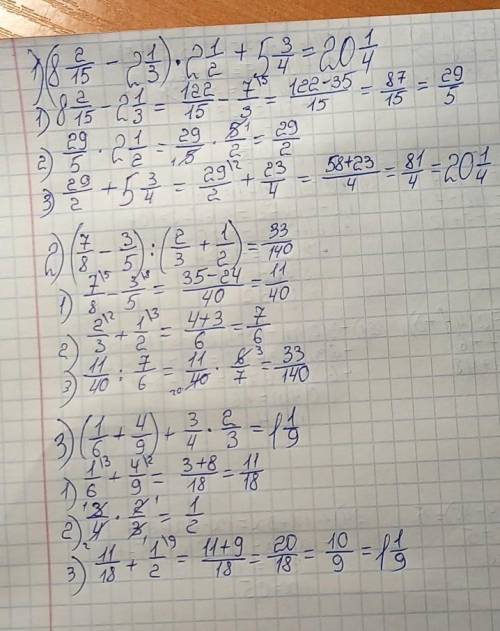 1) (8 2/15 − 2 1/3) · 2 1/2 + 5 3/4 = 20 1/4
1) 8 2/15 − 2 1/3 = 122/15 − 7/3 \5 = (122−35)/15 = 87/15 = 29/5
2) 29/5 · 2 1/2 = 29/5 · 5/2 = 29/2
3) 29/2 + 5 3/4 = 29/2 \2 + 23/4 = (58+23)/4 = 81/4 = 20 1/4
2) (7/8 − 3/5) : (2/3 + 1/2) = 33/140
1) 7/8 \5 − 3/5 \8 = (35−24)/40 = 11/40
2) 2/3 \2 + 1/2 \3 = (4+3)/6 = 7/6
3) 11/40 : 7/6 = 11/40 · 6/7 = 33/140
3) (1/6 + 4/9) + 3/4 · 2/3 = 1 1/9
1) 1/6 \3 + 4/9 \2 = (3+8)/18 = 11/18
2) 3/4 · 2/3 = 1/2
3) 11/18 + 1/2 \9 = (11+9)/18 = 20/18 = 10/9 = 1 1/9